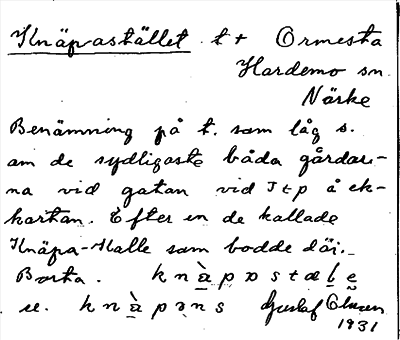 Knäpastället t+ Ormesta
Hardemo sn
Närke
Benämning på t. som låg s.
om de sydligaste båda gårdar-
na vid gatan vid Itp å ek-
kartan. Efter en de kallade
Knäpa-Kalle som bodde där.
Borta. knàpɒstæle
u. knàpəns Gustaf
1931